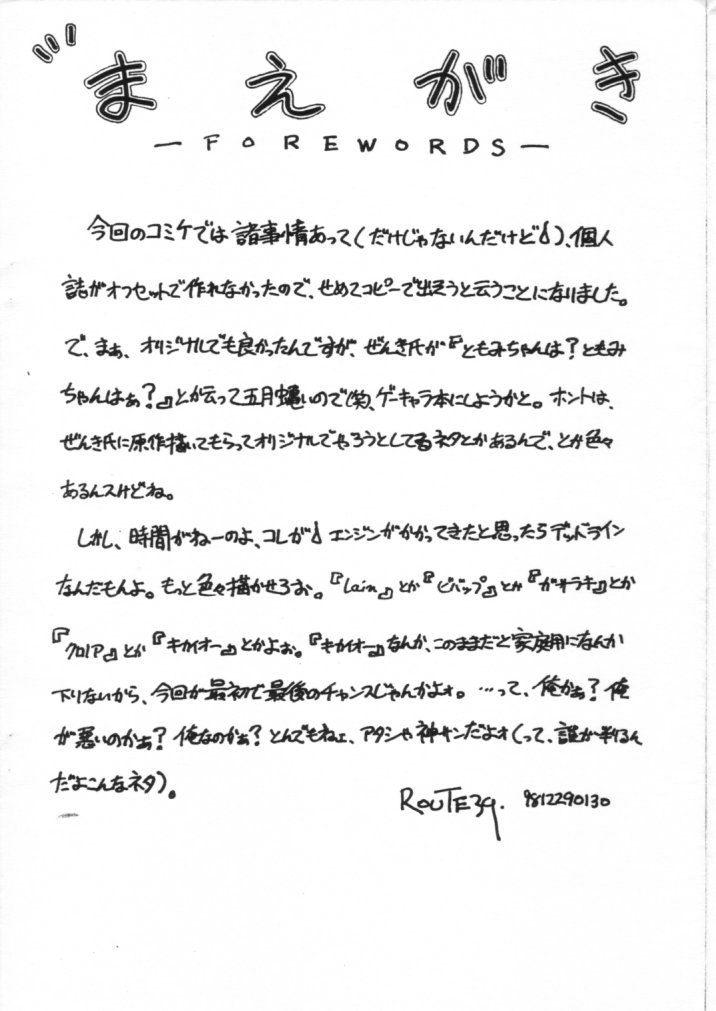 まえがき
—FOREWORDS—
今回のコミケでは諸事情あって(だけじゃないんだけど)、個人
誌がオフセットで作れなかったので、せめてコピーで出そうと云うことになりました。
で、まぁ、オリジナルでも良かったんですが、ぜんき氏が『ともみちゃんは？ともみ
ちゃんはぁ？』とか云って五月蠅いので(笑)、ゲーキャラ本にしようかと。ホントは、
ぜんき氏に原作描いてもらってオリジナルでやろうとしてるネタとかあるんで、とか色々
あるんスけどね。
しかし、時間がねーのよ、コレが! エンジンがかかってきたと思ったらデッドライン
なんだもんよ。もっと色々描かせろぉ。『lain』とか『ビバップ』とか『ガサラキ』とか
『クロノア』とか『キカイオー』とかよぉ。『キカイオー』なんか、このままだと家庭用になんか
下りないから、今回が最初で最後のチャンスじゃんかよォ。…って、俺かぁ？俺
が悪いのかぁ？俺なのかぁ？とんでもねェ、アタシャ神サンだよォ(って、誰が判るん
だよこんなネタ)。
ROUTE39. 9812290130